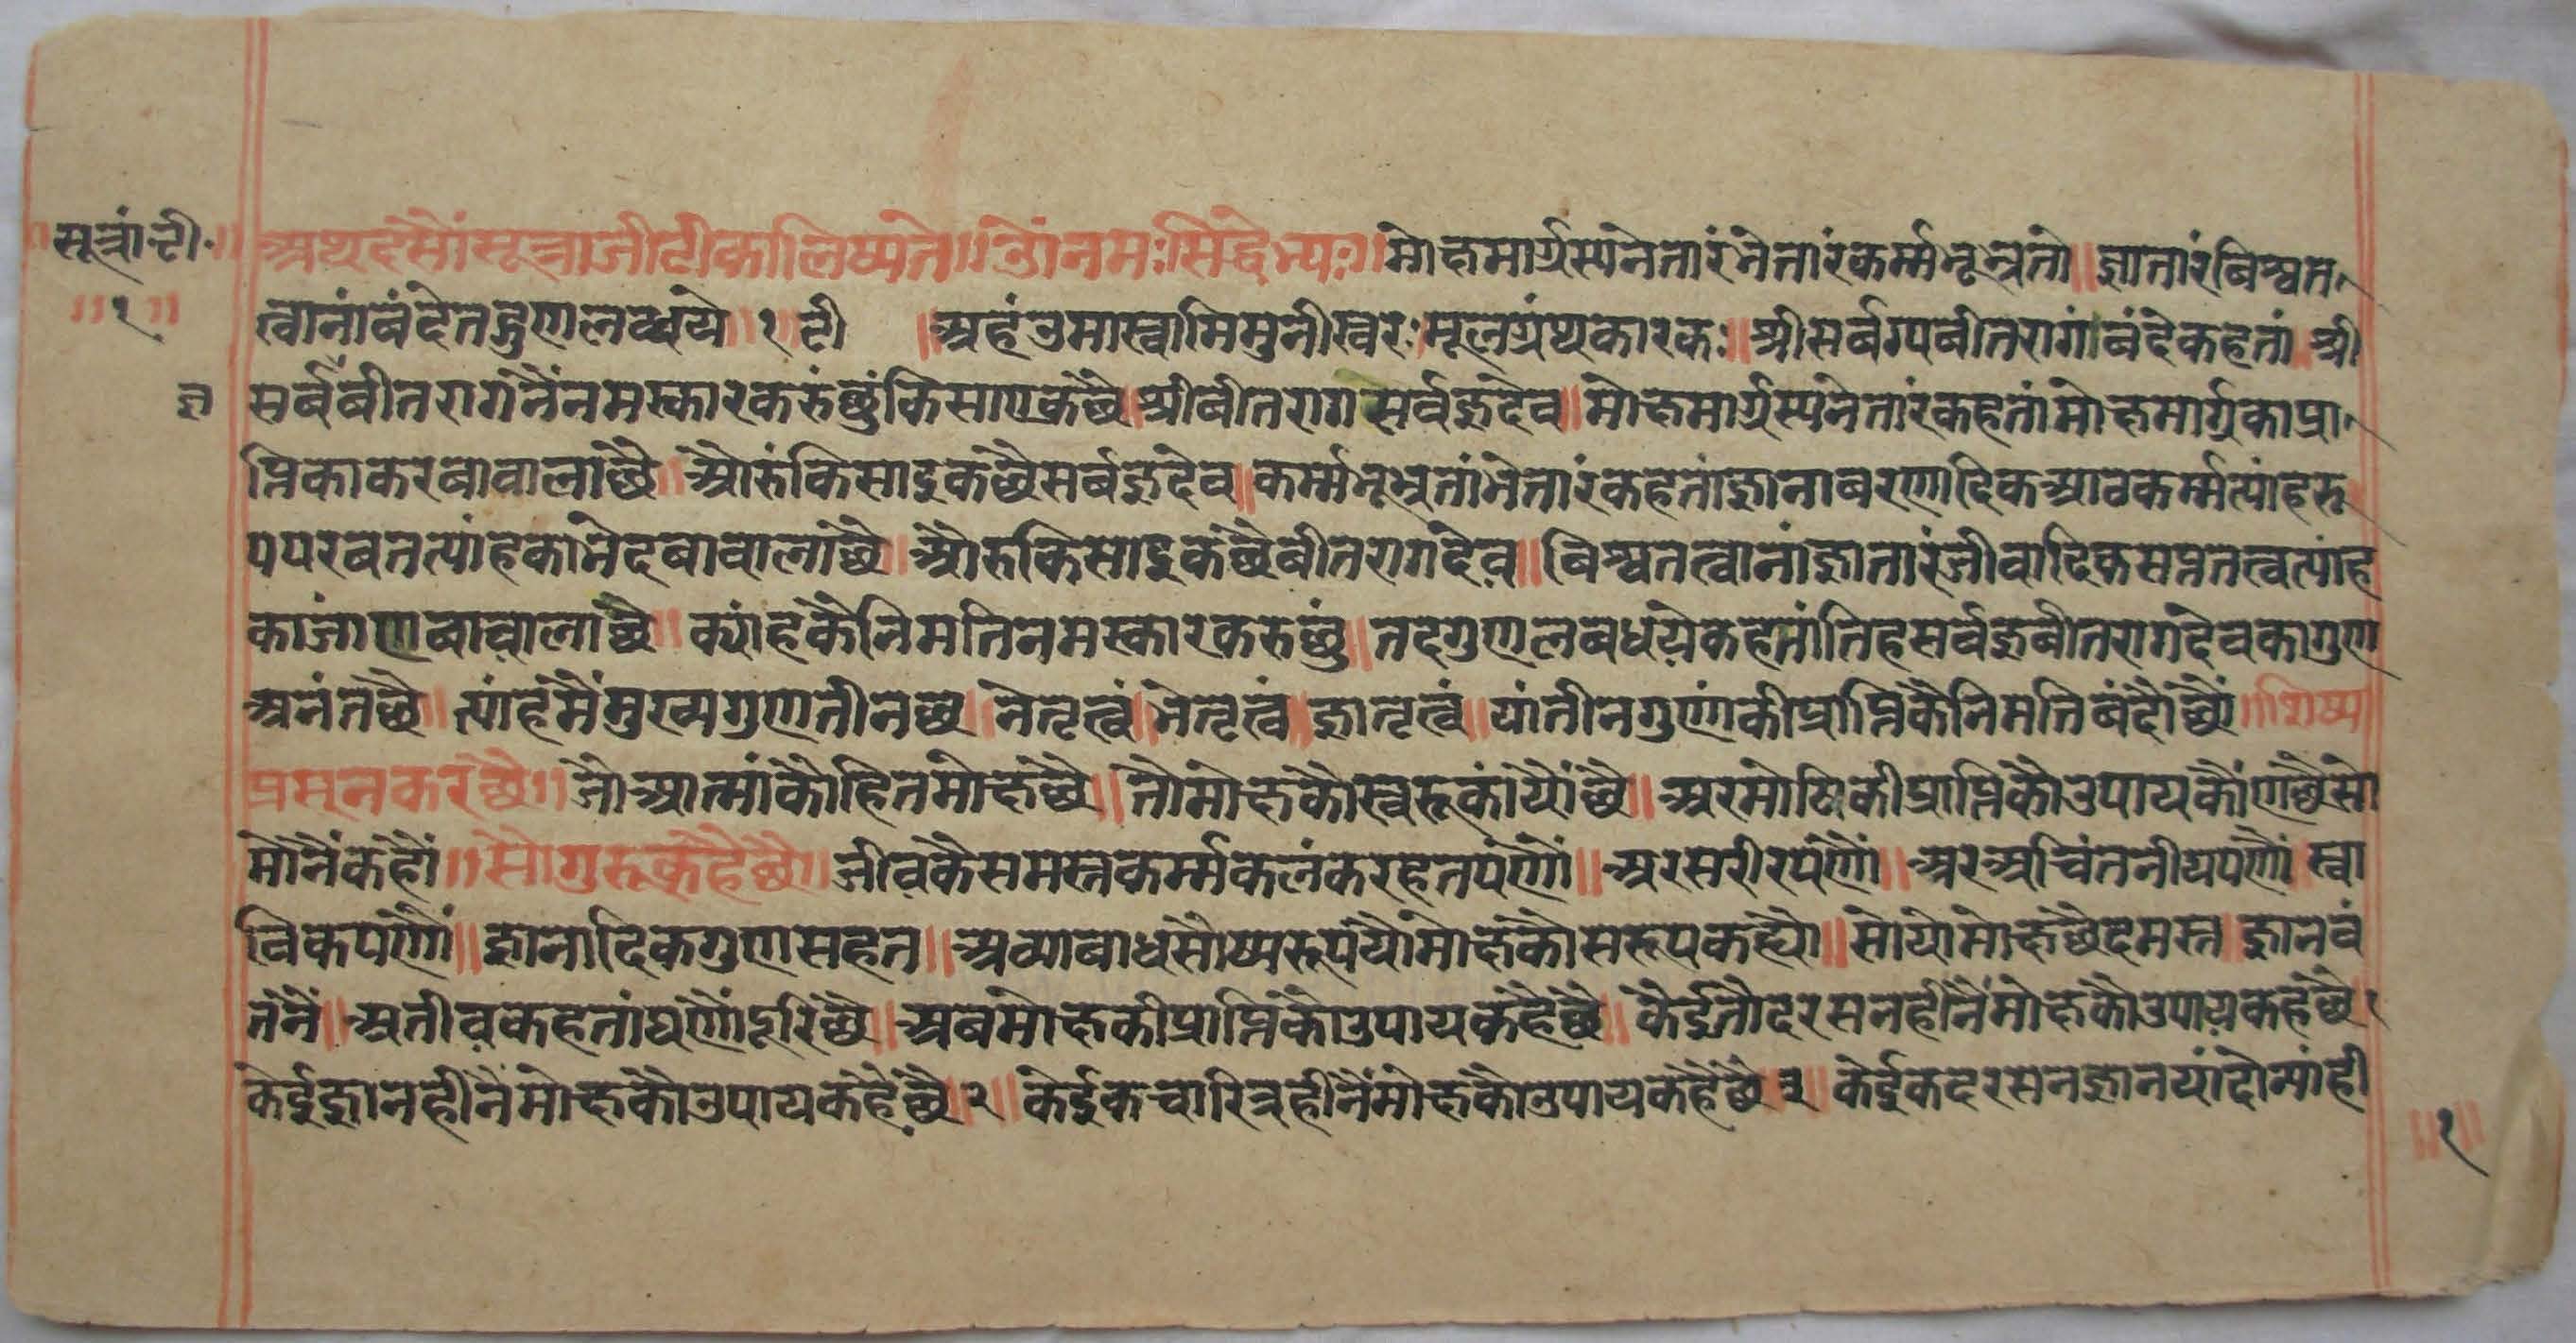 सूत्रां॰टी॰
॥१॥
अथदसौंसूत्राजीटीकालिष्यते॥ॐनमःसिद्धेभ्यः॥मोक्षमार्गस्यनेतारंभेत्तारंकर्म्मभूभृतां॥ज्ञातारंबिश्वत
त्वानांबंदेतद्गुणलब्धये॥१॥टी॥अहंउमास्वामिमुनीस्वरः॥मूलग्रंथकारकः॥श्रीसर्बग्यबीतरागंबंदेकहतां॥श्री
सर्बज्ञबीतरागनैंनमस्कारकरुंछुंकिसाएकछै॥श्रीबीतरागसर्वज्ञदेव॥मोक्षमार्गस्यनेतारंकहतांमोक्षमार्गकाप्रा
प्तिकाकरबावालाछै॥औरुंकिसाइकछैसर्बज्ञदेव॥कर्म्मभूभृतांभेत्तारंकहतांज्ञानाबरणादिकआठकर्म्मत्यांहरू
पपरबतत्यांहकाभेदबावालाछै॥औरुकिसाइकछैबीतरागदेव॥बिश्वतत्वानांज्ञातारंजीवादिकसप्ततत्वत्यांह
काजाणबावालाछै॥क्यांहकैनिमतिनमस्कारकरुछुं॥तदगुणलबधयेकहतांतिहसर्वज्ञबीतरागदेवकागुण
अनंतछै॥त्यांहमैंमुख्यगुणतीनछ॥नेतृत्वं॥भेतृत्वं॥ज्ञातृत्वं॥यांतीनगुणंकीप्राप्तिकैनिमत्तिबंदौंछौं॥शिष्य
प्रसूनकरछै॥जोआत्मांकौहितमोक्षछै॥तौमोक्षकौस्वरूकांयौंछै॥अरमोषिकीप्राप्तिकौउपायकौंणछैसो
मोनैंकहौं॥सोगुरूकहैछै॥जीवकैसमस्तकर्म्मकलंकरहतपणौं॥अरसरीरपणौं॥अरअचिंतनीयपणौं॥स्वा
विकपणौं॥ज्ञानादिकगुणसहत॥अब्याबाधसौष्यरूपयोमोक्षकौसरूपकह्यौ॥सोयोमोक्षछैदमस्त॥ज्ञानवं
तनैं॥अतीवकहतांघणौंदूरिछै॥अबमोक्षकीप्राप्तिकौउपायकहैछै॥केईतौदरसनहीनैंमोक्षकौउपायकहैछै१
केईज्ञानहीनैंमोक्षकौउपायकहैंछै२॥केईकचारित्रहीनैंमोक्षकौउपायकहैंछै३॥केईकदरसनज्ञानयांदोन्यांही
॥१॥